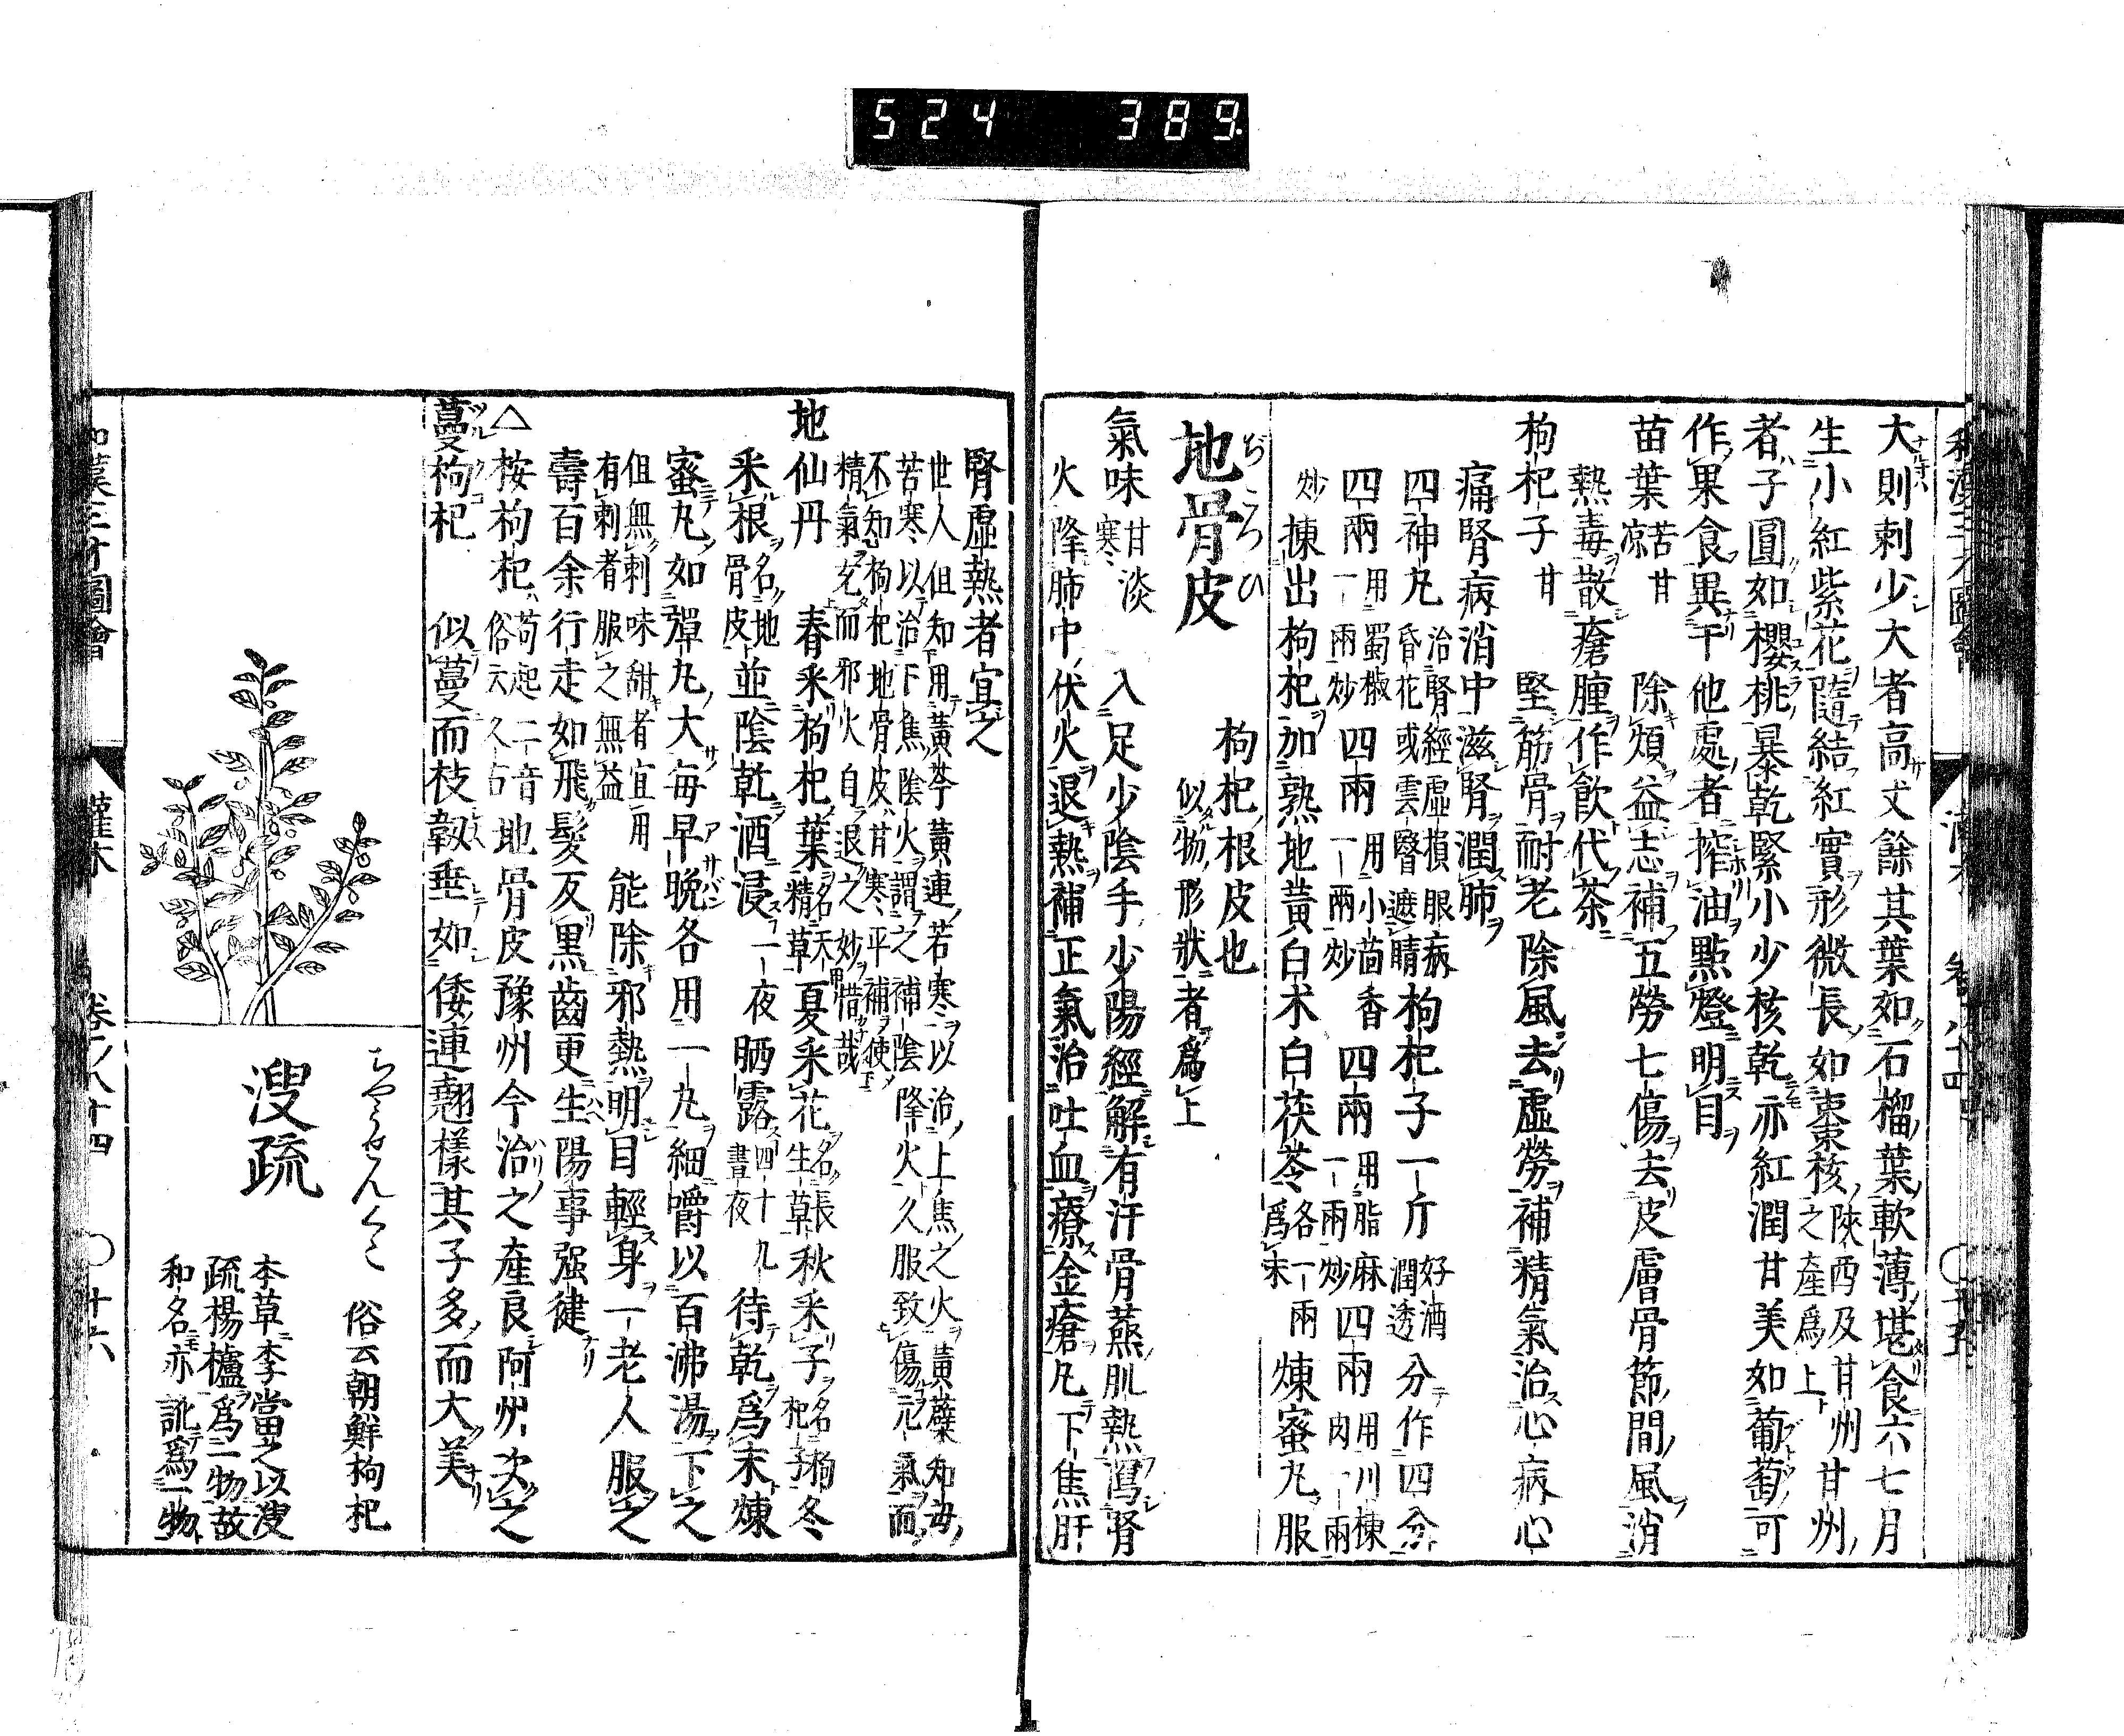 524 389
大則刺少大者高丈餘其葉如石榴葉軟薄堪食六七月
生小紅紫花隨結紅實形微長如棗核陝西及甘州甘州
之產爲上
者子圓如櫻桃暴乾緊小少核乾亦紅潤甘美如葡萄可
作果食異于他處者搾油點燈明目
苗葉苦甘
凉
除煩益志補五勞七傷去皮膚骨節間風消
熱毒散瘡腫作飮代茶
枸杞子甘
堅筋骨耐老除風去虛勞補精氣治心病心
痛腎病消中滋腎潤肺
四神丸治腎經虛損眼病
昏花或雲瞖遮睛
枸杞子一斤好酒
潤透
分作四分
四兩用蜀椒
一兩炒
四兩用小茴香
一兩炒
四兩用脂麻
一兩炒
四兩用川楝
肉一兩
炒揀出枸杞加熟地黃白朮白茯苓各一兩
爲末
煉蜜丸服
地骨皮
ぢこつひ
枸杞根皮也
似物形狀者爲上
氣味甘淡
寒
入足少陰手少陽經解有汗骨蒸肌熱瀉腎
火降肺中伏火退熱補正氣治吐血療金瘡凡下焦肝
腎虛熱者宜之
世人但知用黃芩黃連苦寒以治上焦之火黃蘗知母
苦寒以治下焦陰火謂之補陰降火久服致傷元氣而
不知枸杞地骨皮甘寒平補使
精氣充而邪火自退之妙惜哉
地仙丹
春采枸杞葉名天
精草
夏采花名長
生草
秋采子名枸
杞子
冬
采根名地
骨皮
並陰乾酒浸一夜晒露四十九
晝夜
待乾爲末煉
蜜丸如彈丸大每早晚各用一丸細嚼以百沸湯下之
但無刺味甜者宜用
有刺者服之無益
能除邪熱明目輕身一老人服之
壽百余行走如飛髮反黑齒更生陽事强健
△按枸杞苟起二音
俗云久古
地骨皮豫州今治之產良阿州次之
蔓枸杞
似蔓而枝靱垂如倭連翹樣其子多而大美
溲疏
ちやうせんくこ
俗云朝鮮枸杞
本草李當之以溲
疏楊櫨爲一物故
和名亦訛爲一物
和漢三才圖會
灌木
卷ノ八十四
〇十六